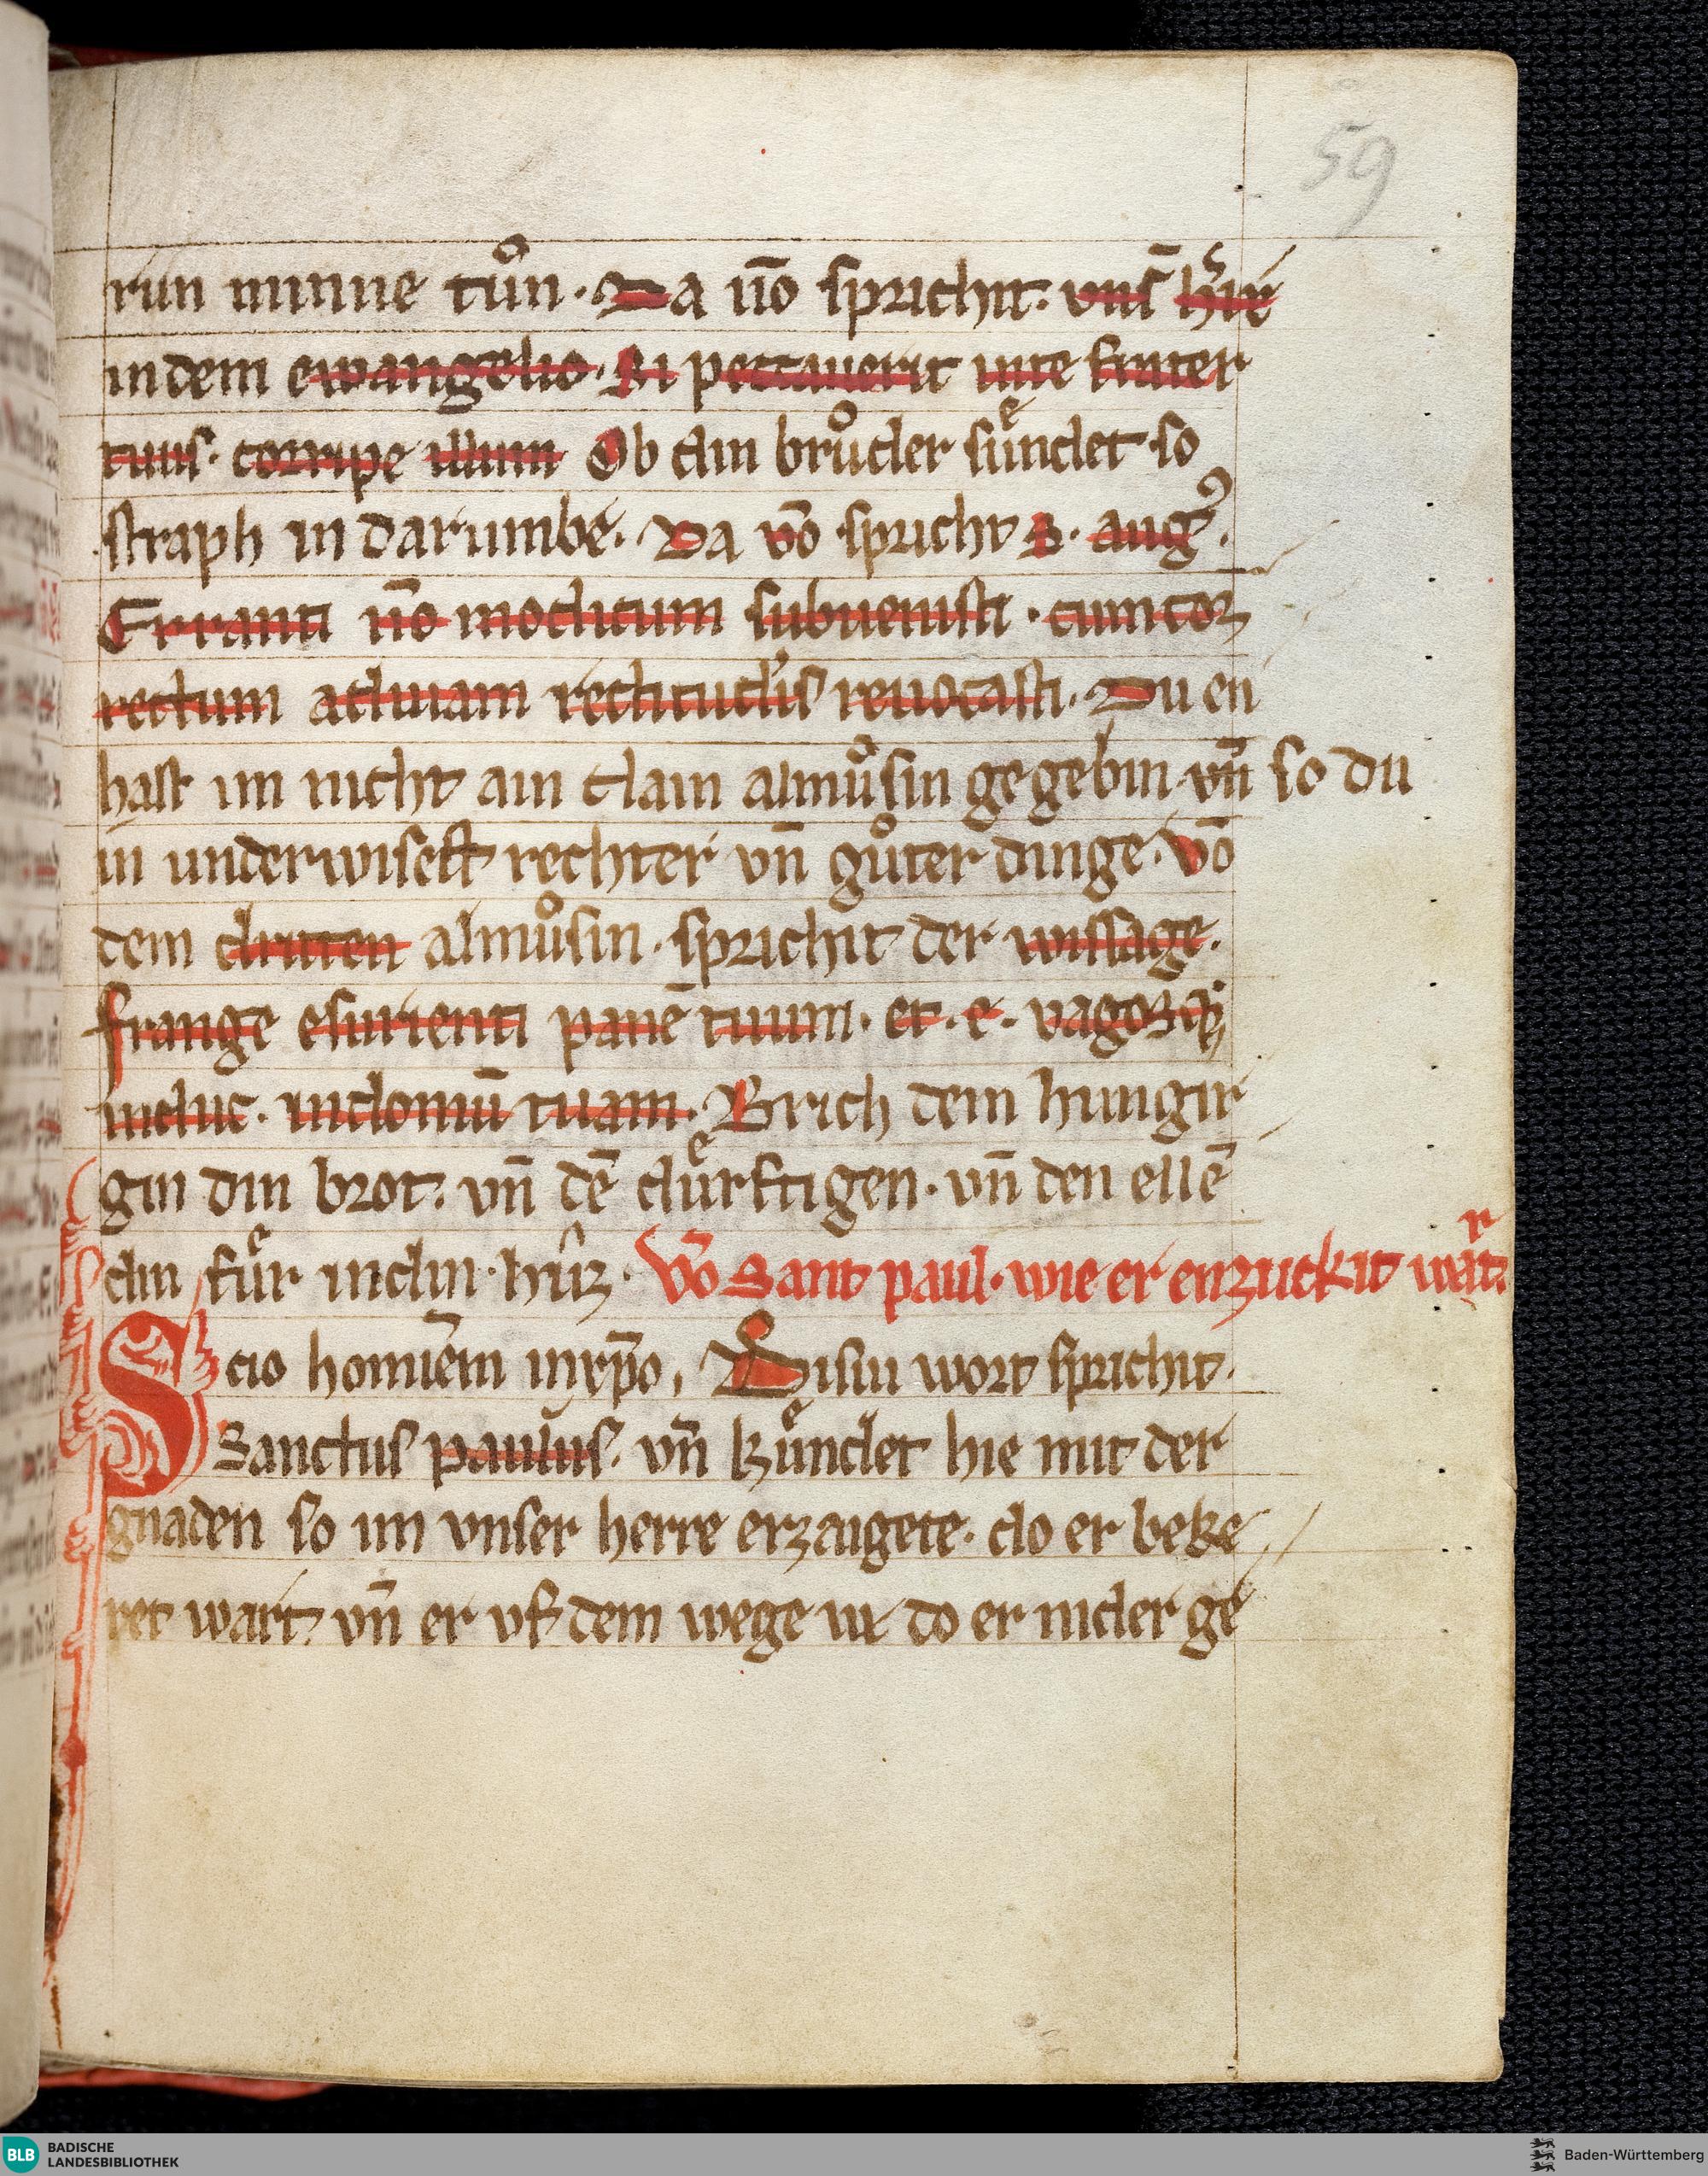 59
run minne tuͦn. Da vō sprichit. vnſ h̄re
in dem ewangelio. Si peccauerit in te frater
tuus. corripe illum Ob din bruͦder suͤndet so
straph in darumbe. Da vō spricht S. aug⁹.
Erranti nō modicum subuenisti. cum cor
rectum ad uiam rectitud'is reuocasti. Du en
hast im nicht ain clain almuͦsin gegebin. vn̄ so du
in underwisest rechter vn̄ guͦter dinge. Vō
dem dritten almuͦsin. sprichit der wissage.
frange esurienti panē tuum. et. e. vagosqꝫ
induc. in domū tuam. Brich dem hungir
gin din brot. vn̄ dē duͤrftigen. vn̄ den ellē
din fuͤr in din. hûz. Vō Sant paul. wie er enzuckit wart.
Scio hominem in xp̄o. Disiu wort sprichit.
Sanctus paulus. vn̄ kuͤndet hie mit der
gnaden so im vnser herre erzaigete. do er beke
ret wart. vn̄ er vf dem wege in do er nider ge
BLB BADISCHE
LANDESBIBLIOTHEK
Baden-Württemberg